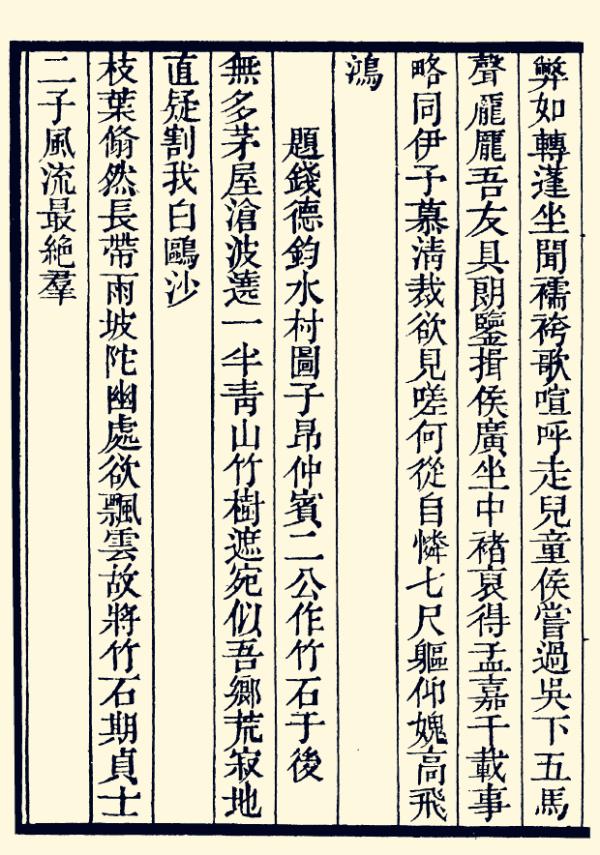 弊如轉蓬坐聞襦袴歌喧呼走兒童侯嘗過吳下五馬
聲龐龐吾友具朗鑒揖侯廣坐中褚裒得孟嘉千載事
略同伊予慕淸裁欲見嗟何從自憐七尺軀仰媿高飛
鴻
題錢德鈞水村圖子昂仲賓二公作竹石于後
無多茅屋滄波遶一半靑山竹樹遮宛似吾鄉荒寂地
直疑割我白鷗沙
枝葉翛然長帶雨坡陀幽處欲飄雲故將竹石期貞士
二子風流最絶羣